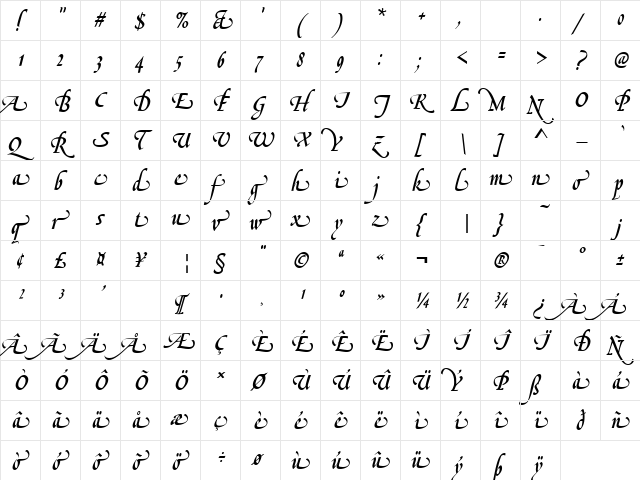 ! " # $ % & ' ( ) * + , · / 0
1 2 3 4 5 6 7 8 9 : ; < = > ? @
A B C D E F G H I J K L M N O P
Q R S T U V W X Y Z [ \ ] ^ _ `
a b c d e f g h i j k l m n o p
q r s t u v w x y z { | } ~ j
¢ £ ¤ ¥ ¦ § " © ª « ¬ ® ¯ ° ±
² ³ ´ ¶ · ¸ ¹ º » ¼ ½ ¾ ¿ À Á
Â Ã Ä Å Æ Ç È É Ê Ë Ì Í Î Ï Ð Ñ
Ò Ó Ô Õ Ö × Ø Ù Ú Û Ü Ý Þ ß à á
â ã ä å æ ç è é ê ë ì í î ï ð ñ
ò ó ô õ ö ÷ ø ù ú û ü ý þ ÿ